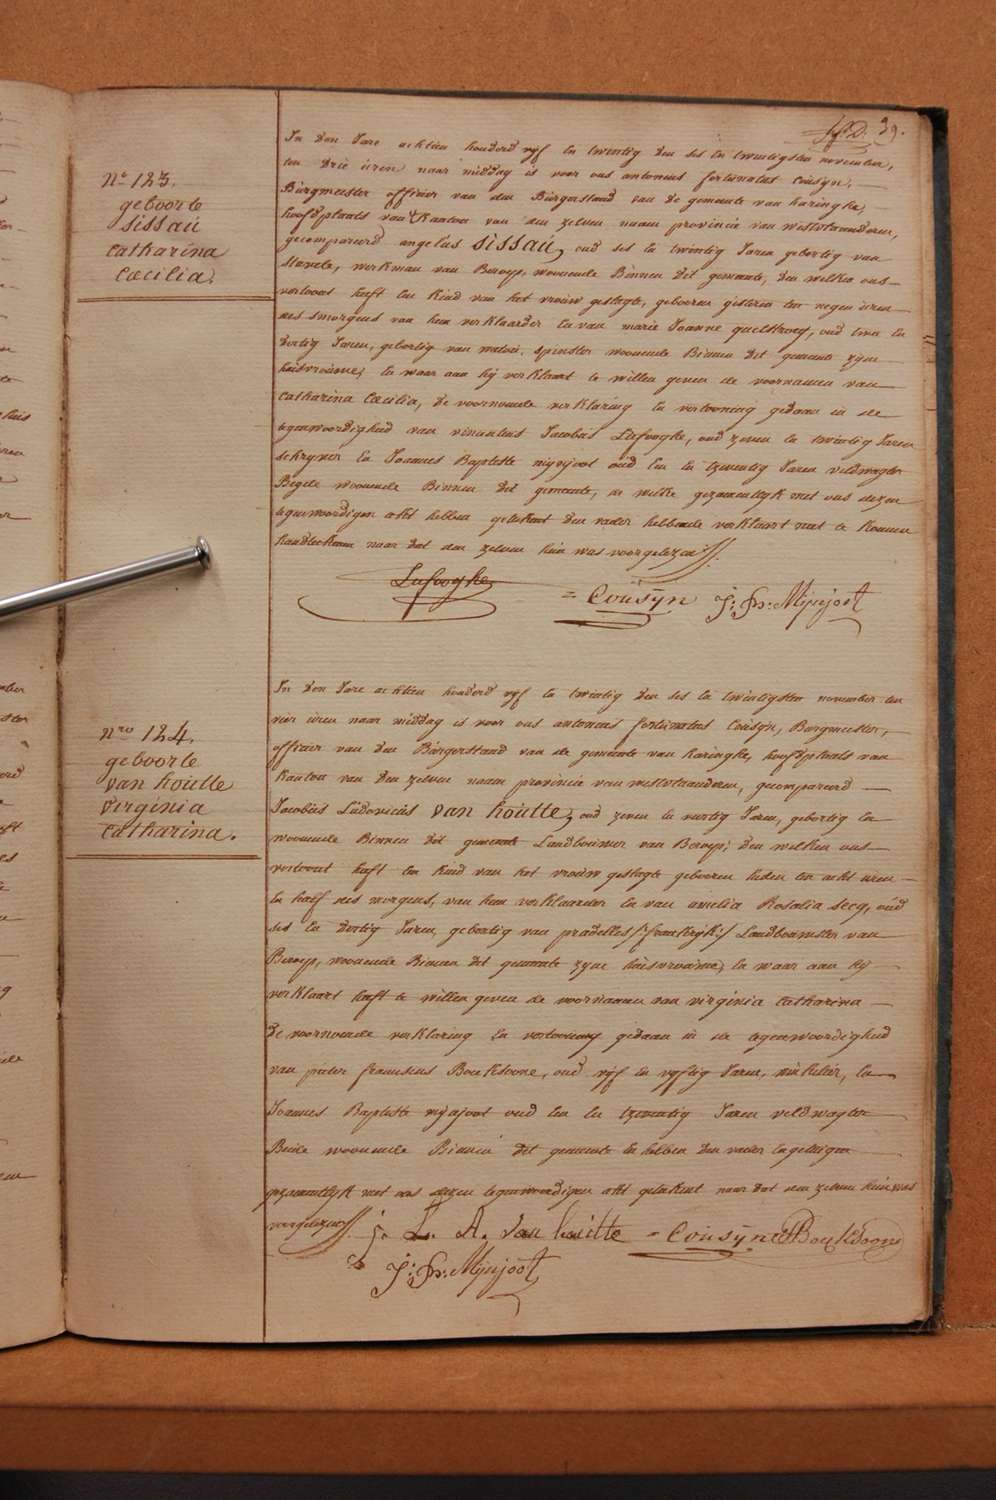 39.
N.º 123.
geboorte
sissau
catharina
Cæcilia.
In den Jare achtien honderd vyf en twintig den ses en twintigsten november,
ten drie uren naer middag is voor ons antonius fortunatus Cousyn,
Burgmeester officier van den Burgerstand van de gemeente van haringhe,
hoofdplaats van Kanton van den zelven naam provincie van westvlaanderen,
gecompareerd angelus sissau, oud ses en twintig Jaren geboortig van
stavele, werkman van Beroep, woonende Binnen dit gemeente, den welken ons
vertoont heeft een kind van het vrouw geslagte, gebooren gisteren ten negen uren
des smorgens van hem verklaarder en van marie Joanne quelstroey, oud twee en
dertig Jaren, geboortig van watou, spinster woonende Binnen dit gemeente zyne
huisvrouwe, en waar aan hij verklaart te willen geven de voornamen van
Catharina Cæcilia, de voornoemde verklaring en vertooning gedaan in de
tegenwoordigheid van vincentius Jacobus Lefooghe, oud zeven en twintig Jaren
schryver en Joannes Baptiste mynjoot oud een en tzeventig Jaren veldwagter
Beyde woonende Binnen dit gemeente, de welke gezaamentlyk met ons dezen
tegenwoordigen akt hebben geteekent den vader hebbende verklaart niet te konnen
handteekenen naar dat den zelven hun was voorgelezen
Lefooghe = Cousÿn J: Bp: Mijnjoot
nro 124.
geboorte
van houtte
virginia
catharina.
In den Jare achtien honderd vyf en twintig den ses en twintigsten november ten
vier uren naar middag is voor ons antonius fortunatus Cousyn, Burgmeester,
officier van den Burgerstand van de gemeente van haringhe, hoofdplaats van
Kanton van den zelven naam provincie van westvlaanderen, gecompareerd
Jacobus Ludovicus van houtte, oud zeven en veertig Jaren, geboortig en
woonende Binnen dit gemeente Landbouwer van Beroep; den welken ons
vertoont heeft een kind van het vrouw geslagte gebooren heden ten acht uren
en half des morgens, van hem verklaarder en van amelia Rosalia secq, oud
ses en dertig Jaren, geboortig van pradelles /:frankryk:/ Landbouwster van
Beroep, woonende Binnen dit gemeente zyne huisvrouwe, en waar aan hij
verklaart heeft te willen geven de voornaamen van virginia catharina
De voornoemde verklaring en vertooning gedaan in de tegenwoordigheid
van pieter franciscus Bouckdoone, oud vyf en vyftig Jaren, winkelier, en
Joannes Baptiste mynjoot oud een en tzeventig Jaren veldwagter
Beide woonende Binnen dit gemeente en hebben den vader en getuigen
gezamentlyk met ons dezen tegenwoordigen akt geteekent naar dat den zelven hun was
voorgelezen J. L. A. Van houtte = Cousÿn Bouckdoone
J: Bp: Mijnjoot